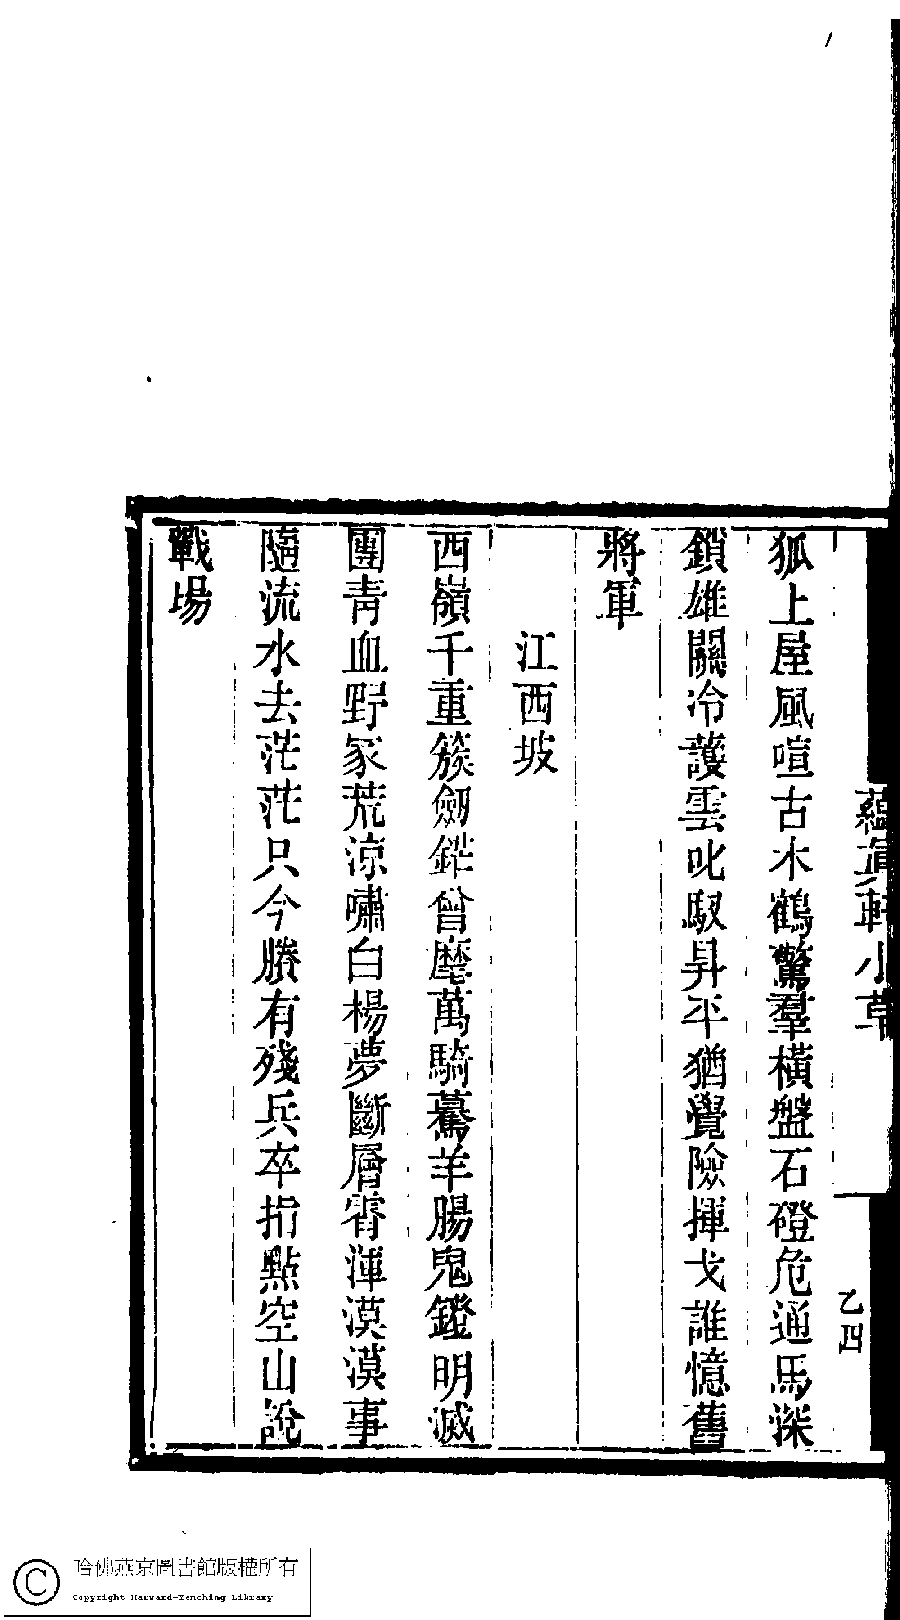 蘊真軒小草
乙四
狐上屋風喧古木鶴驚羣橫盤石磴危通馬深
鎖雄關冷護雲叱馭昇平猶覺險揮戈誰憶舊
將軍
江西坡
西嶺千重簇劔鋩曾麾萬騎驀羊腸鬼鐙明滅
團青血野冢荒涼嘯白楊夢斷層霄渾漠漠事
隨流水去茫茫只今賸有殘兵卒指點空山說
戰場
哈佛燕京圖書館版權所有
Copyright Harvard-Yenching Library